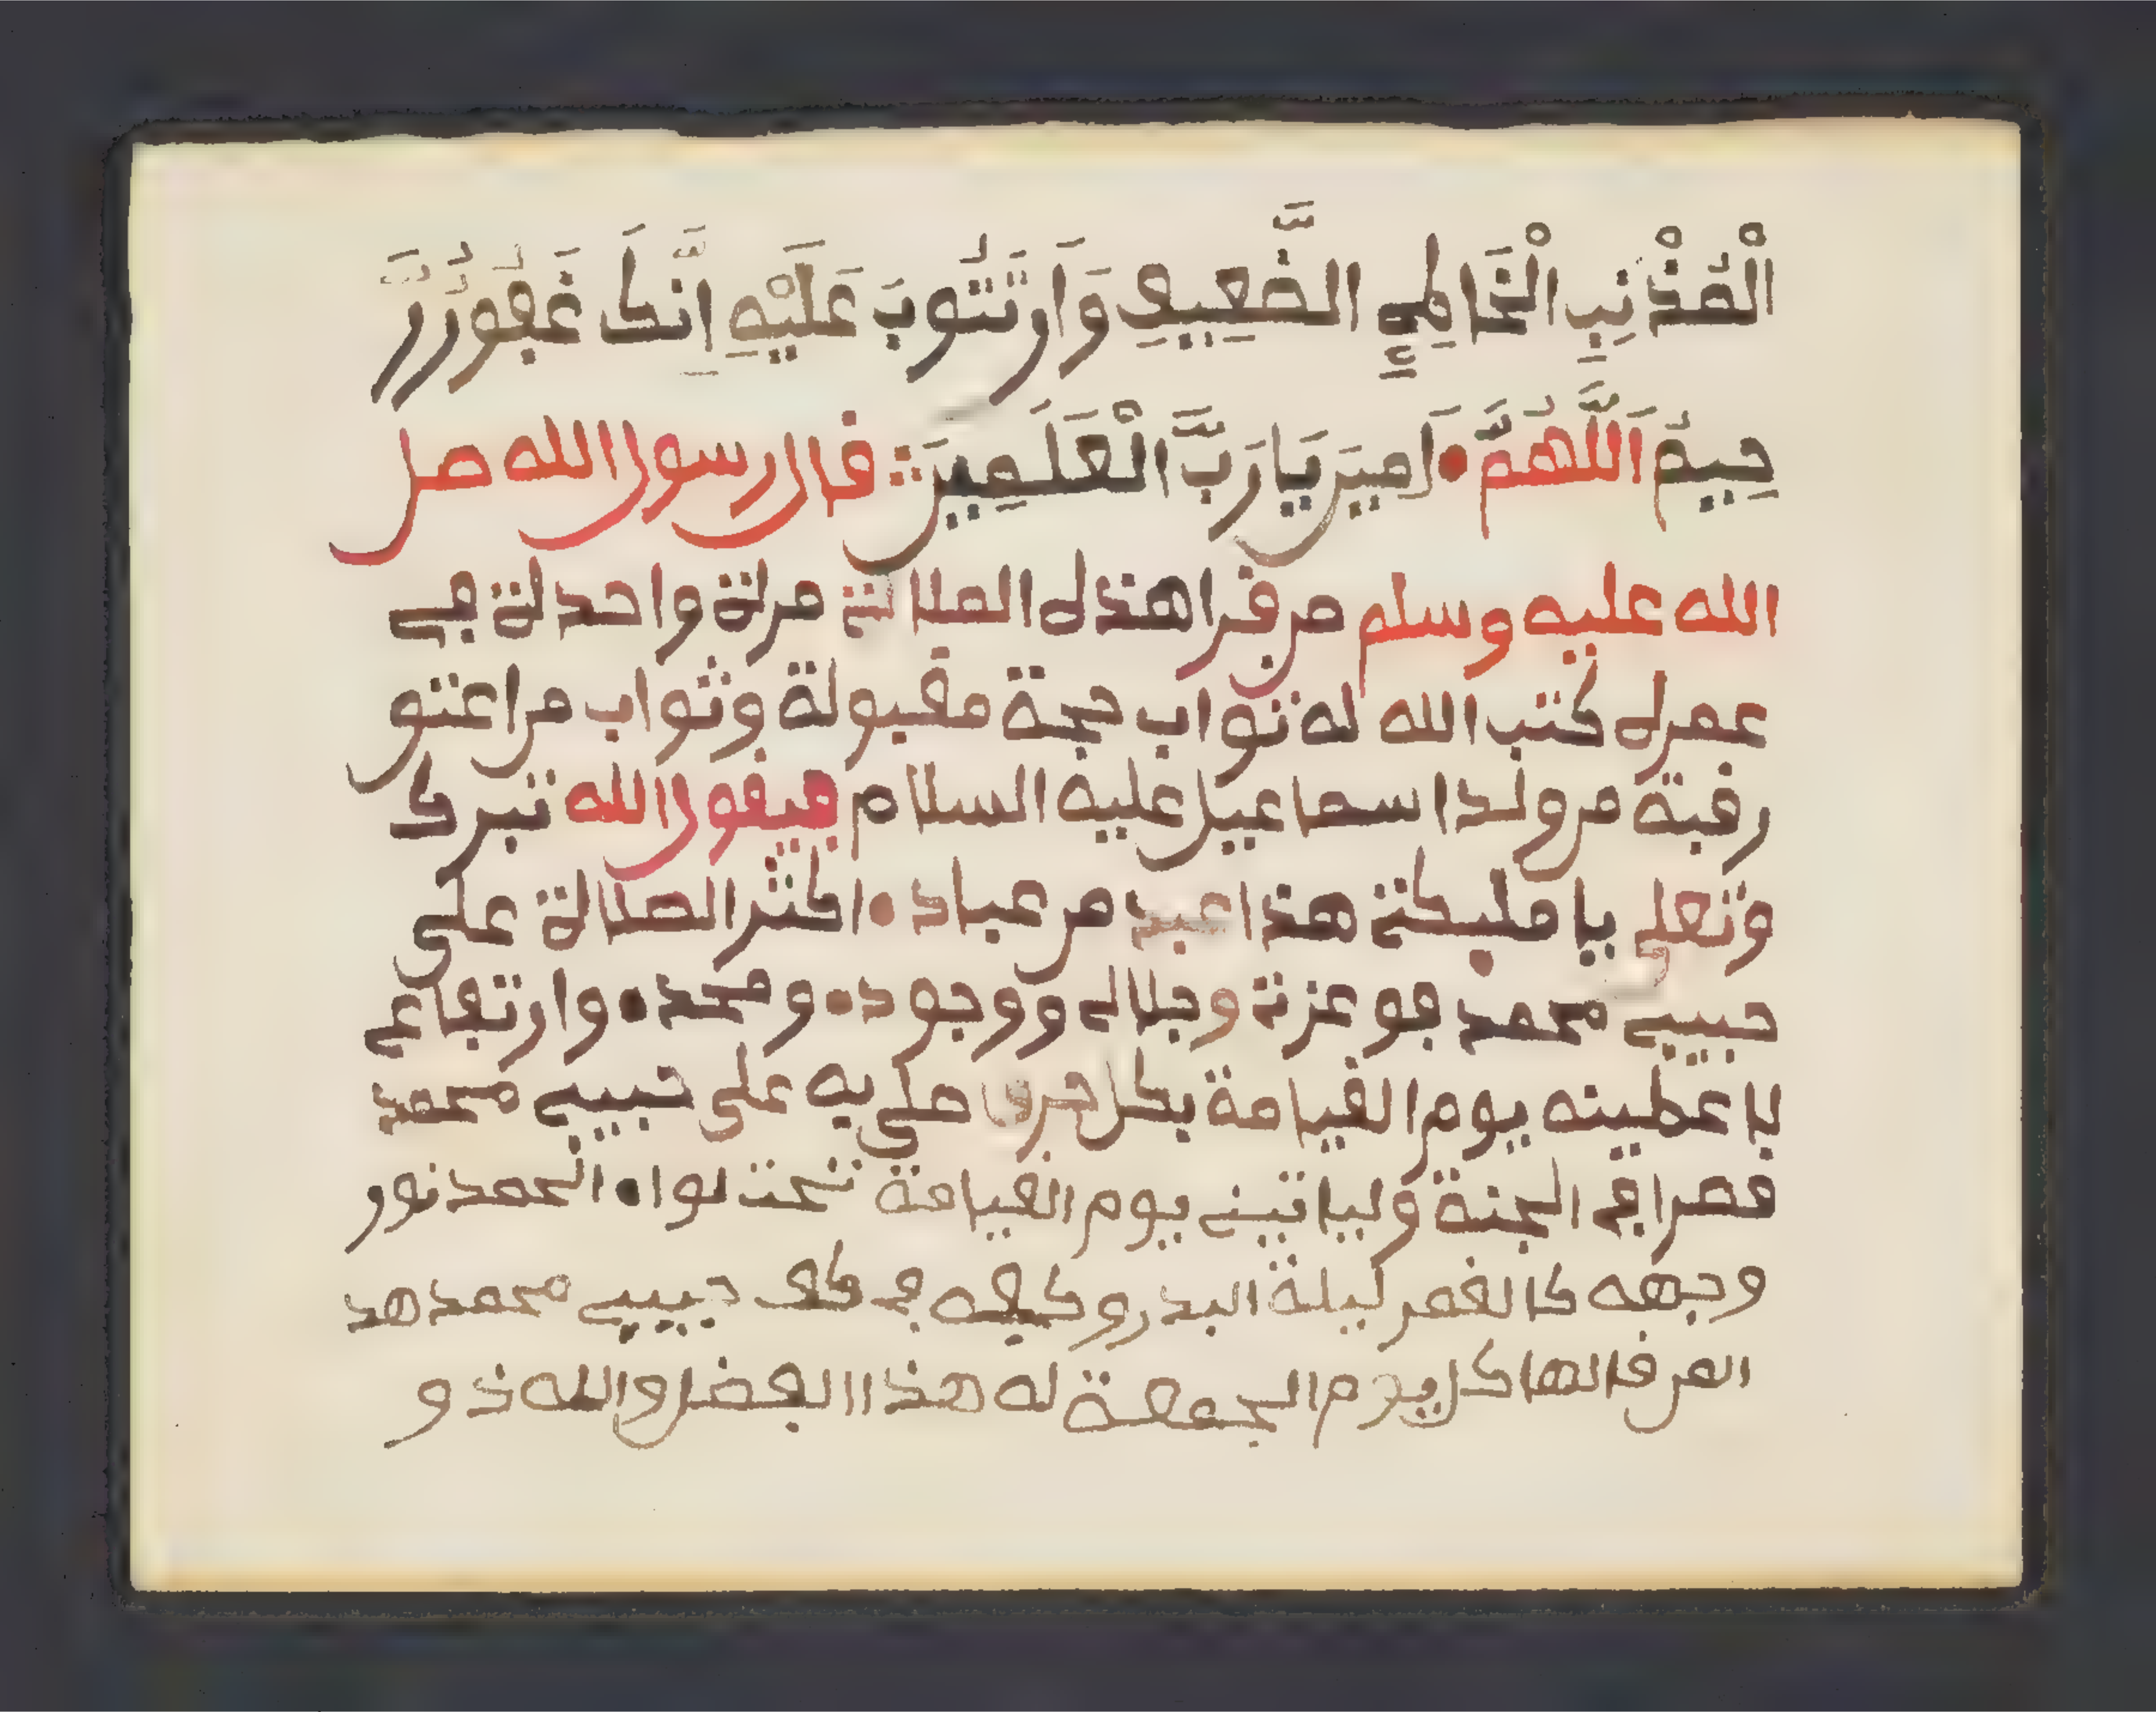 الْمُذْنِبِ الْخَاطِئِ الضَّعِيفِ وَاَن تَتُوبَ عَلَيْهِ اِنَّكَ غَفُورُرَّ
حِيمُ اَللَّهُمَّ اَمِينَ يَا رَبَّ الْعَلَمِينَ قال رسول الله صل
الله عليه وسلم من قرا هذه الصلاة مرة واحدة في
عمره كتب الله له ثواب حجة مقبولة وثواب من اعتق
رقبة من ولد اسماعيل عليه السلام فيقول الله تبرك
وتعلى يا مليكتي هذا عبد من عباد اكثر الصلاة على
حبيبي محمد فو عزتي وجلالي ووجود ومجد وارتفاعي
لاعطينه يوم القيامة بكل حرف صلى به على حبيبي محمد
قصرا في الجنة ولياتيني يوم القيامة تحت لواء الحمد نور
وجهه كالقمر ليلة البدر وكفه في كف حبيبي محمد هذ
المن قالها كل يوم الجمعة له هذا الفضل والله ذو